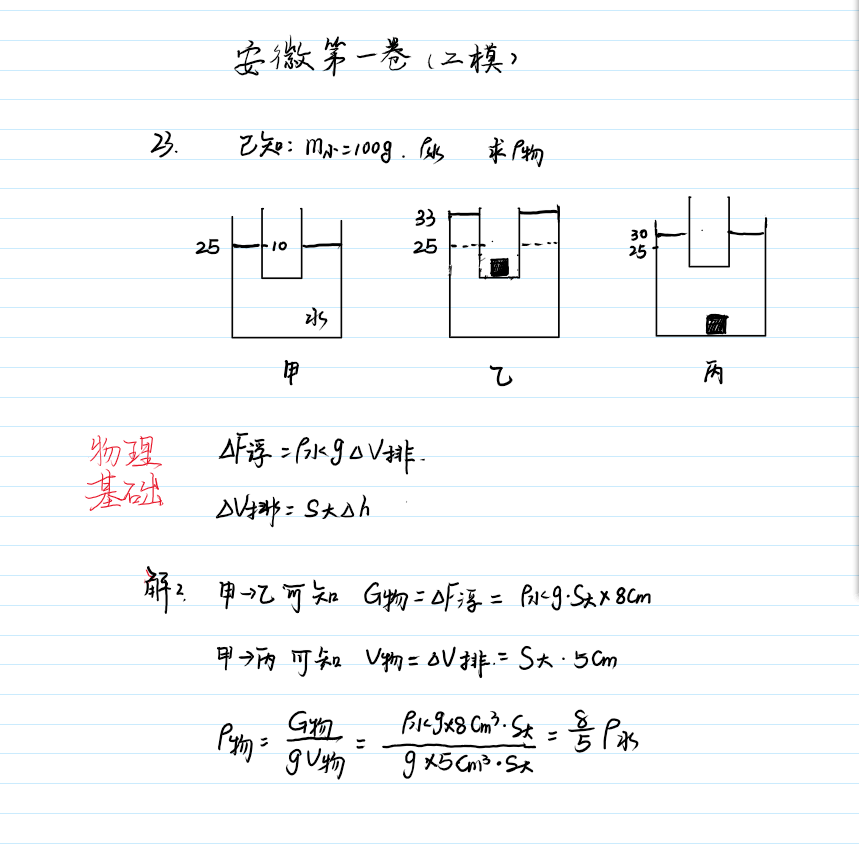 安徽第一卷（二模）
23. 已知：m小=100g. ρ水 求ρ物
25 10 水
33 25
30 25
甲 乙 丙
物理基础
ΔF浮=ρ水gΔV排.
ΔV排=S大Δh
解2. 甲→乙可知 G物=ΔF浮=ρ水g·S大×8cm
甲→丙可知 V物=ΔV排.=S大·5cm
ρ物=G物/gV物=ρ水g×8cm³·S大/g×5cm³·S大=8/5ρ水